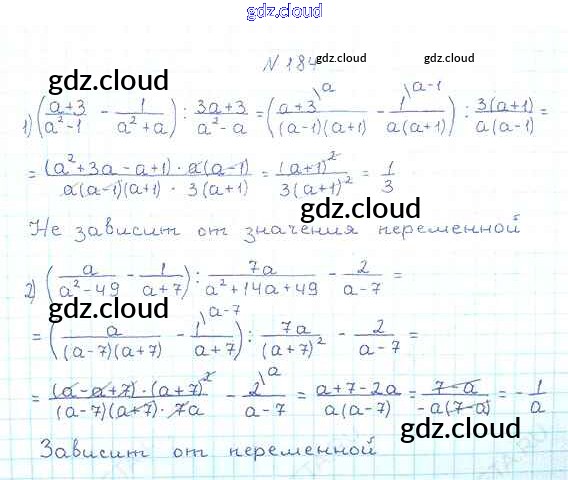 gdz.cloud
N 184
gdz.cloud gdz.cloud
gdz.cloud
1) ((a+3)/(a²-1) - 1/(a²+a)) : (3a+3)/(a²-a) = ((a+3)/((a-1)(a+1)) \a - 1/(a(a+1)) \a-1) : 3(a+1)/(a(a-1)) =
= ((a²+3a-a+1)·a(a-1))/(a(a-1)(a+1)·3(a+1)) = (a+1)²/(3(a+1)²) = 1/3
gdz.cloud gdz.cloud
Не зависит от значения переменной
2) (a/(a²-49) - 1/(a+7)) : 7a/(a²+14a+49) - 2/(a-7) =
gdz.cloud gdz.cloud
= (a/((a-7)(a+7)) - 1/(a+7) \a-7) : 7a/(a+7)² - 2/(a-7) =
= ((a-a+7)·(a+7)²)/((a-7)(a+7)·7a) - 2/(a-7) \a = (a+7-2a)/(a(a-7)) = (7-a)/(-a(7-a)) = -1/a
gdz.cloud gdz.cloud
Зависит от переменной